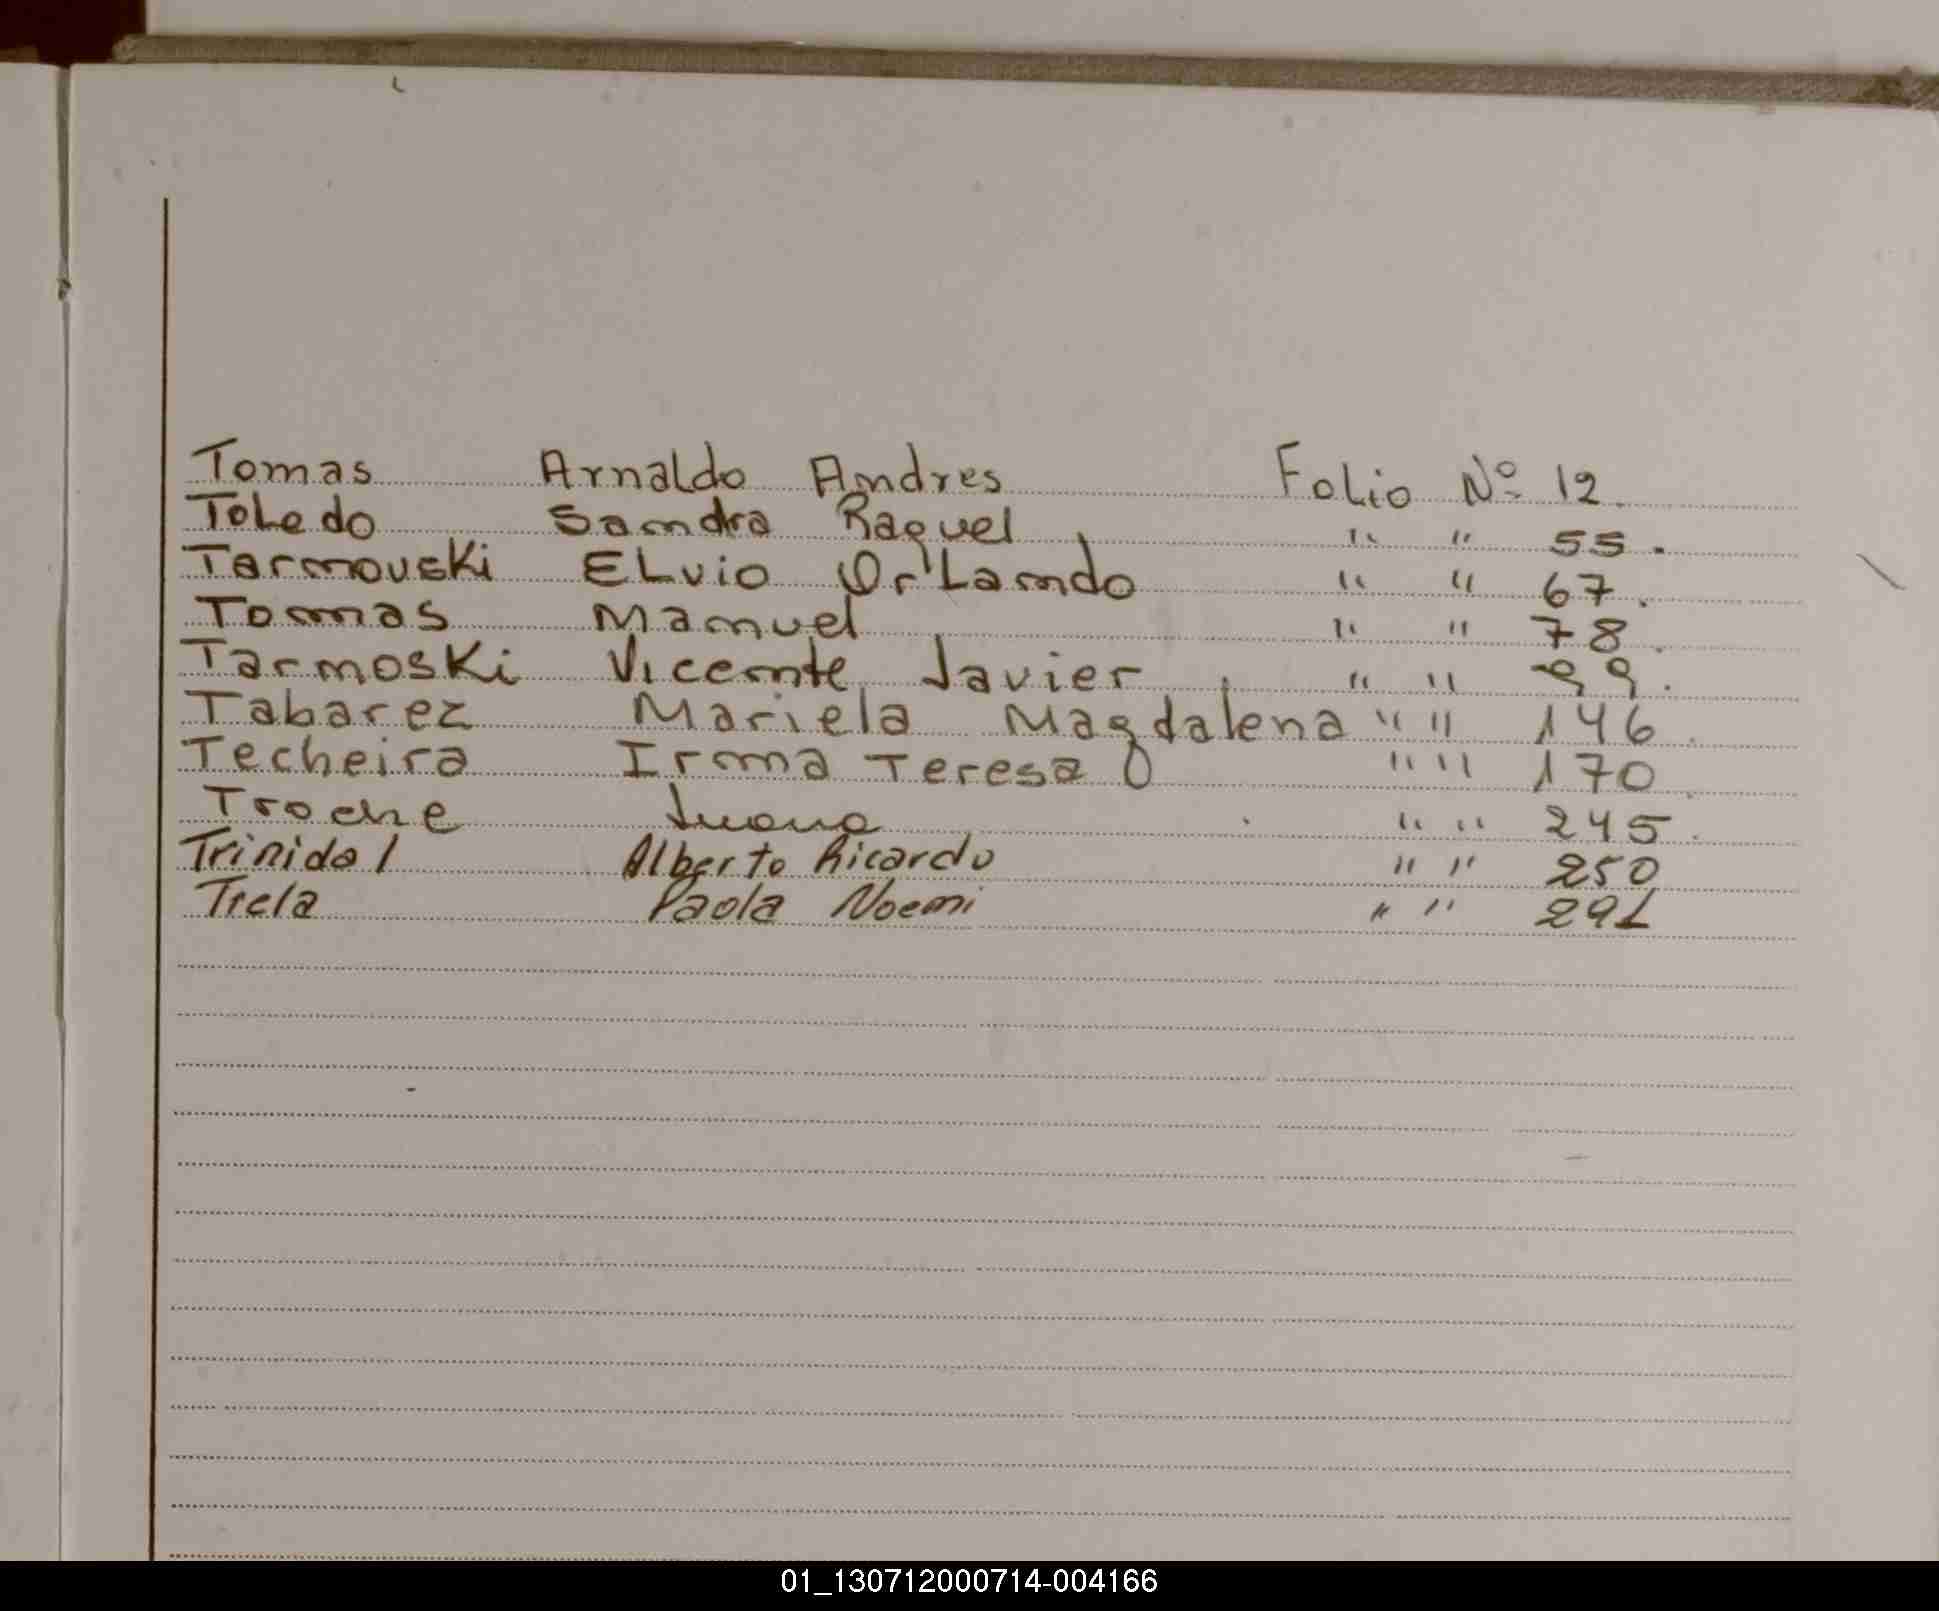 Tomas Arnaldo Andres Folio Nº 12.
Toledo Sandra Raquel " " 55.
Tarmouski Elvio Orlando " " 67.
Tomas Manuel " " 78.
Tarmoski Vicente Javier " " 99.
Tabarez Mariela Magdalena " " 146.
Techeira Irma Teresa " " 170.
Troche Juana " " 245.
Trinidad Alberto Ricardo " " 250
Trela Paola Noemi " " 291
01_130712000714-004166